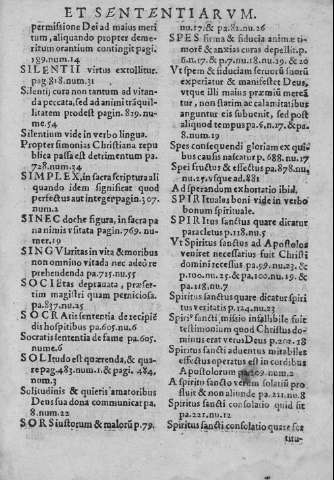 ET SENTENTIARVM.
permissione Dei ad maius meri
tum, aliquando propter deme-
ritum orantium contingit pagi.
189.num.14
SILENTII virtus extollitur.
pag.818.nu.31
Silentij cura non tantum ad vitan-
da peccata, sed ad animi trãquil-
litatem prodest pagin. 819. nu-
me.54
Silentium vide in verbo lingua.
Propter simonias Christiana repu
blica passa est detrimentum pa.
728.num.34
SIMPLEX, in sacra scriptura ali
quando idem significat quod
perfectus aut integer pagin.307.
num.2
SINEC doche figura, in sacra pa
na nimis vsitata pagin.769. nu-
mer.19
SINGVlaritas in vita & moribus
non omnino vitada nec adeò re
prehendenda pa.715.nu.55
SOCIEtas deprauata, præser-
tim magistri quam perniciosa.
pa.837.nu.25
SOCRAtis sententia de recipiẽ
dis hospitibus pa.605.nu.6
Socratis sententia de fame pa.605.
nume.6
SOLItudo est quærenda, & qua-
re pag.483.num.1. & pagi. 484.
num.3
Solitudinis & quietis amatoribus
Deus sua dona communicat pa.
8.num.22
SORS iustorum & malorũ p.79.
nu.17. & pa.82.nu.26
SPES firma & fiducia animæ ti-
morẽ & anxias curas depellit. p.
6.n.17. & p.7.nu.18.nu.19. & 20
Vt spem & fiduciam seruorũ suorũ
experiatur & manifestet Deus,
vtque illi maius præmiũ merea
tur, non statim ac calamitatibus
anguntur eis subuenit, sed post
aliquod tempus pa.6.n.17. & pa.
8.num.19
Spes consequendi gloriam ex qui-
bus causis nascatur p.688.nu.17
Spei fructus & effectus pa.878.nu,
nu.25.vsque ad.881
Ad sperandum exhortatio ibid.
SPIRItuales boni vide in verbo
bonum spirituale.
SPIRItus sanctus quare dicatur
paracletus p.118.nu.5
Vt Spiritus sanctus ad Apostolos
veniret necessarius fuit Christi
domini recessus pa.99.nu.23. &
p.100.nu.25. & pa.100.nu.19. &
pa.118.nu.7
Spiritus sanctus quare dicatur spiri
tus veritatis p.124.nu.23
Spiritus sancti missio infallibile fuit
testimonium quod Christus do-
minus erat verus Deus p.202.18
Spiritus sancti aduentus mirabiles
effectus operatus est in cordibus
Apostolorum pa.209.num.2
A spiritu sancto verum solatiũ pro
fluit & non aliunde pa.211.nu.8
Spiritus sancti consolatio quid sit
pa.221.nu.12
Spiritus sancti consolatio quare spi
ritu-